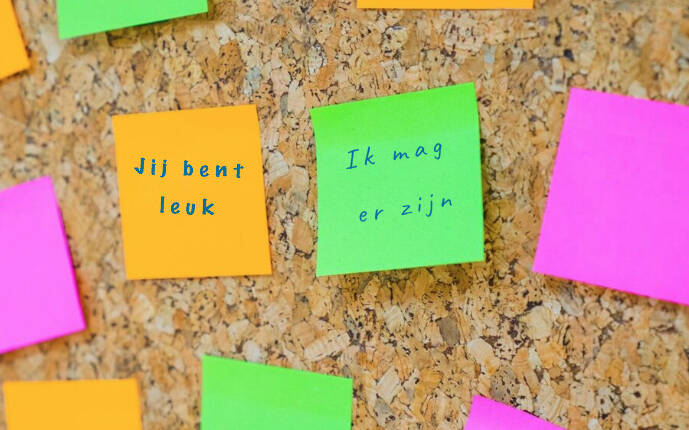 Jij bent
leuk
Ik mag
er zijn